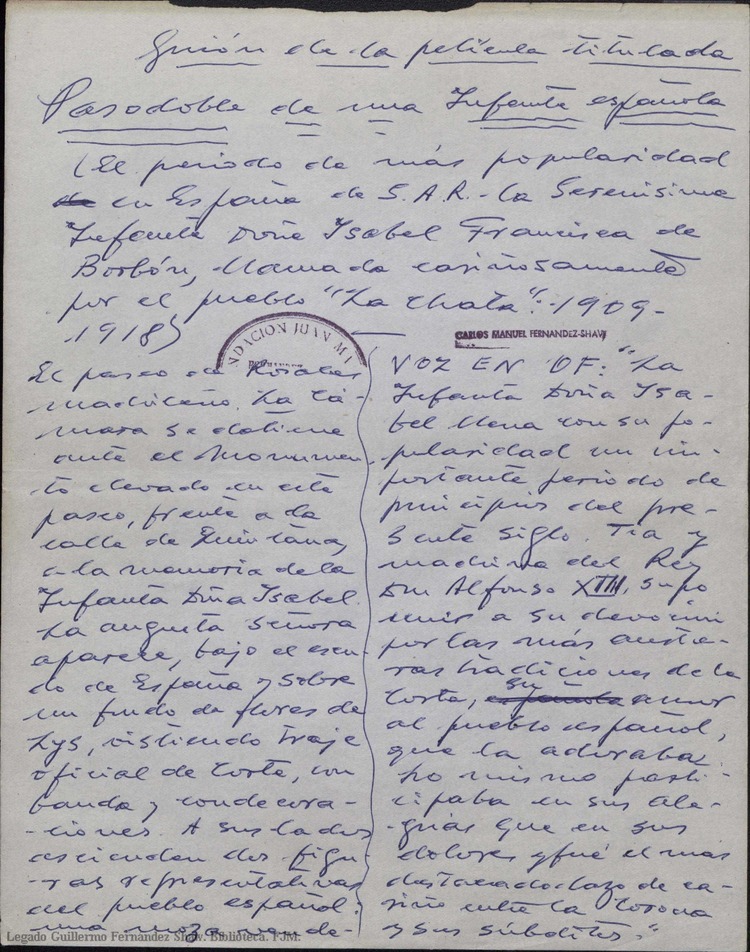 Guión de la película titulada
Pasodoble de una Infanta española
(El periodo de más popularidad
de en España de S.A.R. la Serenísima
Infanta Doña Isabel Francisca de
Borbón, llamada cariñosamente
por el pueblo "La Chata": -1909-
-1918)
NDACION JUAN MA
CARLOS MANUEL FERNANDEZ-SHAW
El paseo de Rosales
madrileño. La cá-
mara se detiene
ante el monumen-
to elevado en este
paseo, frente a la
calle de Quintana,
a la memoria de la
Infanta Dña Isabel.
La augusta Señora
aparece, bajo el escu-
do de España y sobre
un fondo de flores de
Lys, vistiendo traje
oficial de Corte, con
banda y condecora-
-ciones. A sus lados
ascienden dos figu-
-ras representativas
del pueblo español:
una moza
VOZ EN OF: "La
Infanta Doña Isa-
bel llena con su po-
pularidad un im-
portante periodo de
principios del pre-
sente siglo. Tía y
madrina del Rey
Don Alfonso XIII, supo
unir a su devoción
por las más auste-
ras tradiciones de la
Corte, española su amor
al pueblo español,
que la adoraba.
Lo mismo parti-
cipaba en sus ale-
-grías que en sus
dolores y fué el más
destacado lazo de ca-
riño entre la Corona
y sus súbditos."
Legado Guillermo Fernández Shaw. Biblioteca. FJM.